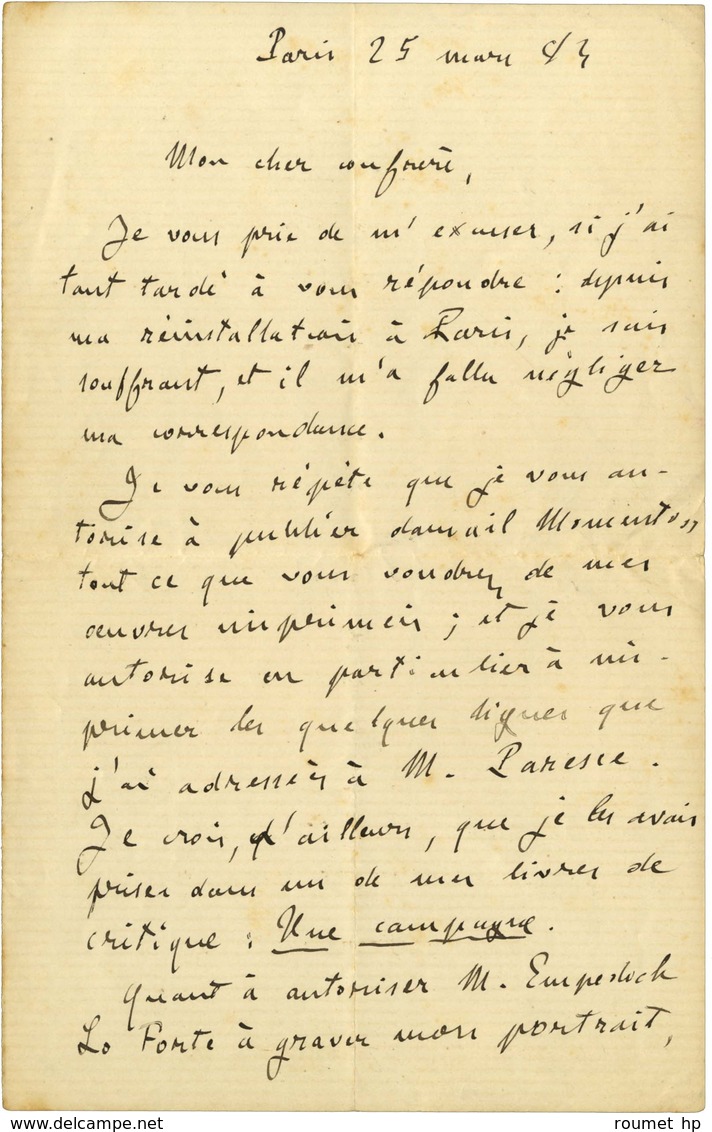 Paris 25 mars 83
Mon cher confrère,
Je vous prie de m'excuser, si j'ai
tant tardé à vous répondre : depuis
ma réinstallation à Paris, je suis
souffrant, et il m'a fallu négliger
ma correspondance.
Je vous répète que je vous au-
torise à publier dans il Momento
tout ce que vous voudrez de mes
œuvres imprimées ; et je vous
autorise en particulier à im-
primer les quelques lignes que
j'ai adressées à M. Paresce.
Je crois, d'ailleurs, que je les avais
prises dans un de mes livres de
critique : Une campagne.
Quant à autoriser M. Empedock
Lo Forte à graver mon portrait,
roumet hp